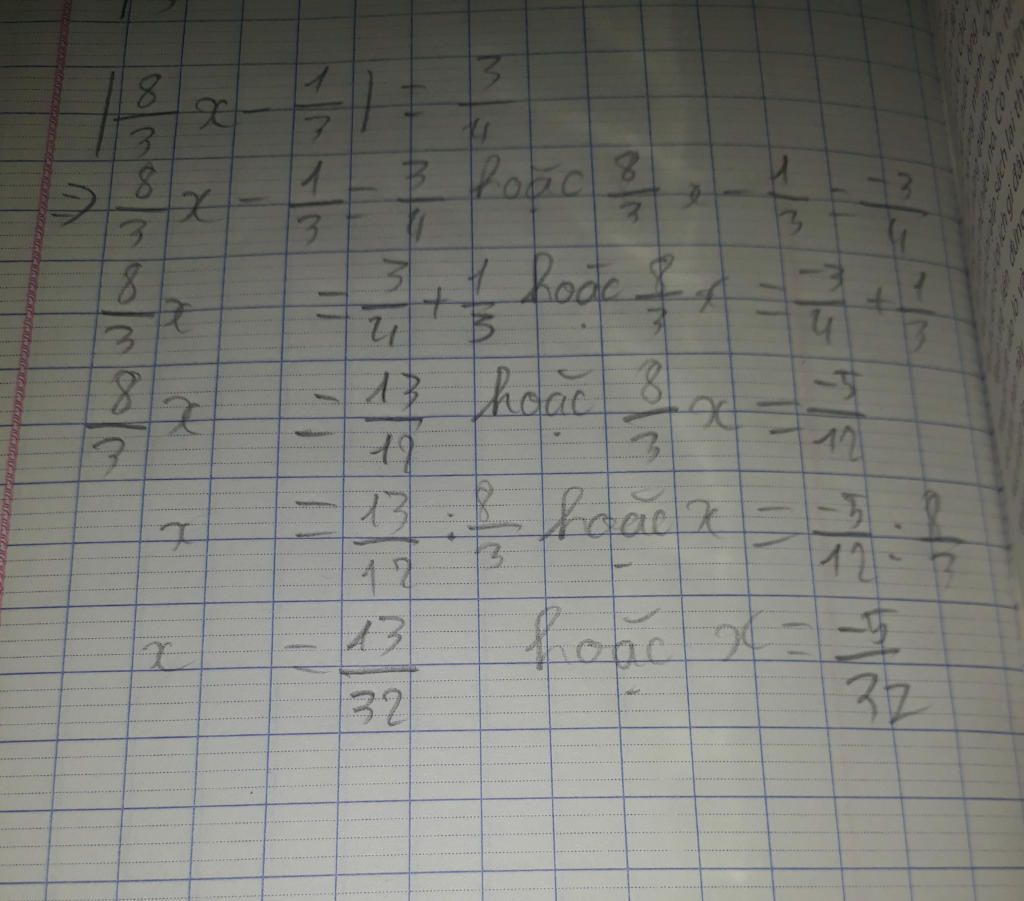 |8/3 x - 1/3| = 3/4
⇒ 8/3 x - 1/3 = 3/4 hoặc 8/3 x - 1/3 = -3/4
8/3 x = 3/4 + 1/3 hoặc 8/3 x = -3/4 + 1/3
8/3 x = 13/12 hoặc 8/3 x = -5/12
x = 13/12 : 8/3 hoặc x = -5/12 : 8/3
x = 13/32 hoặc x = -5/32